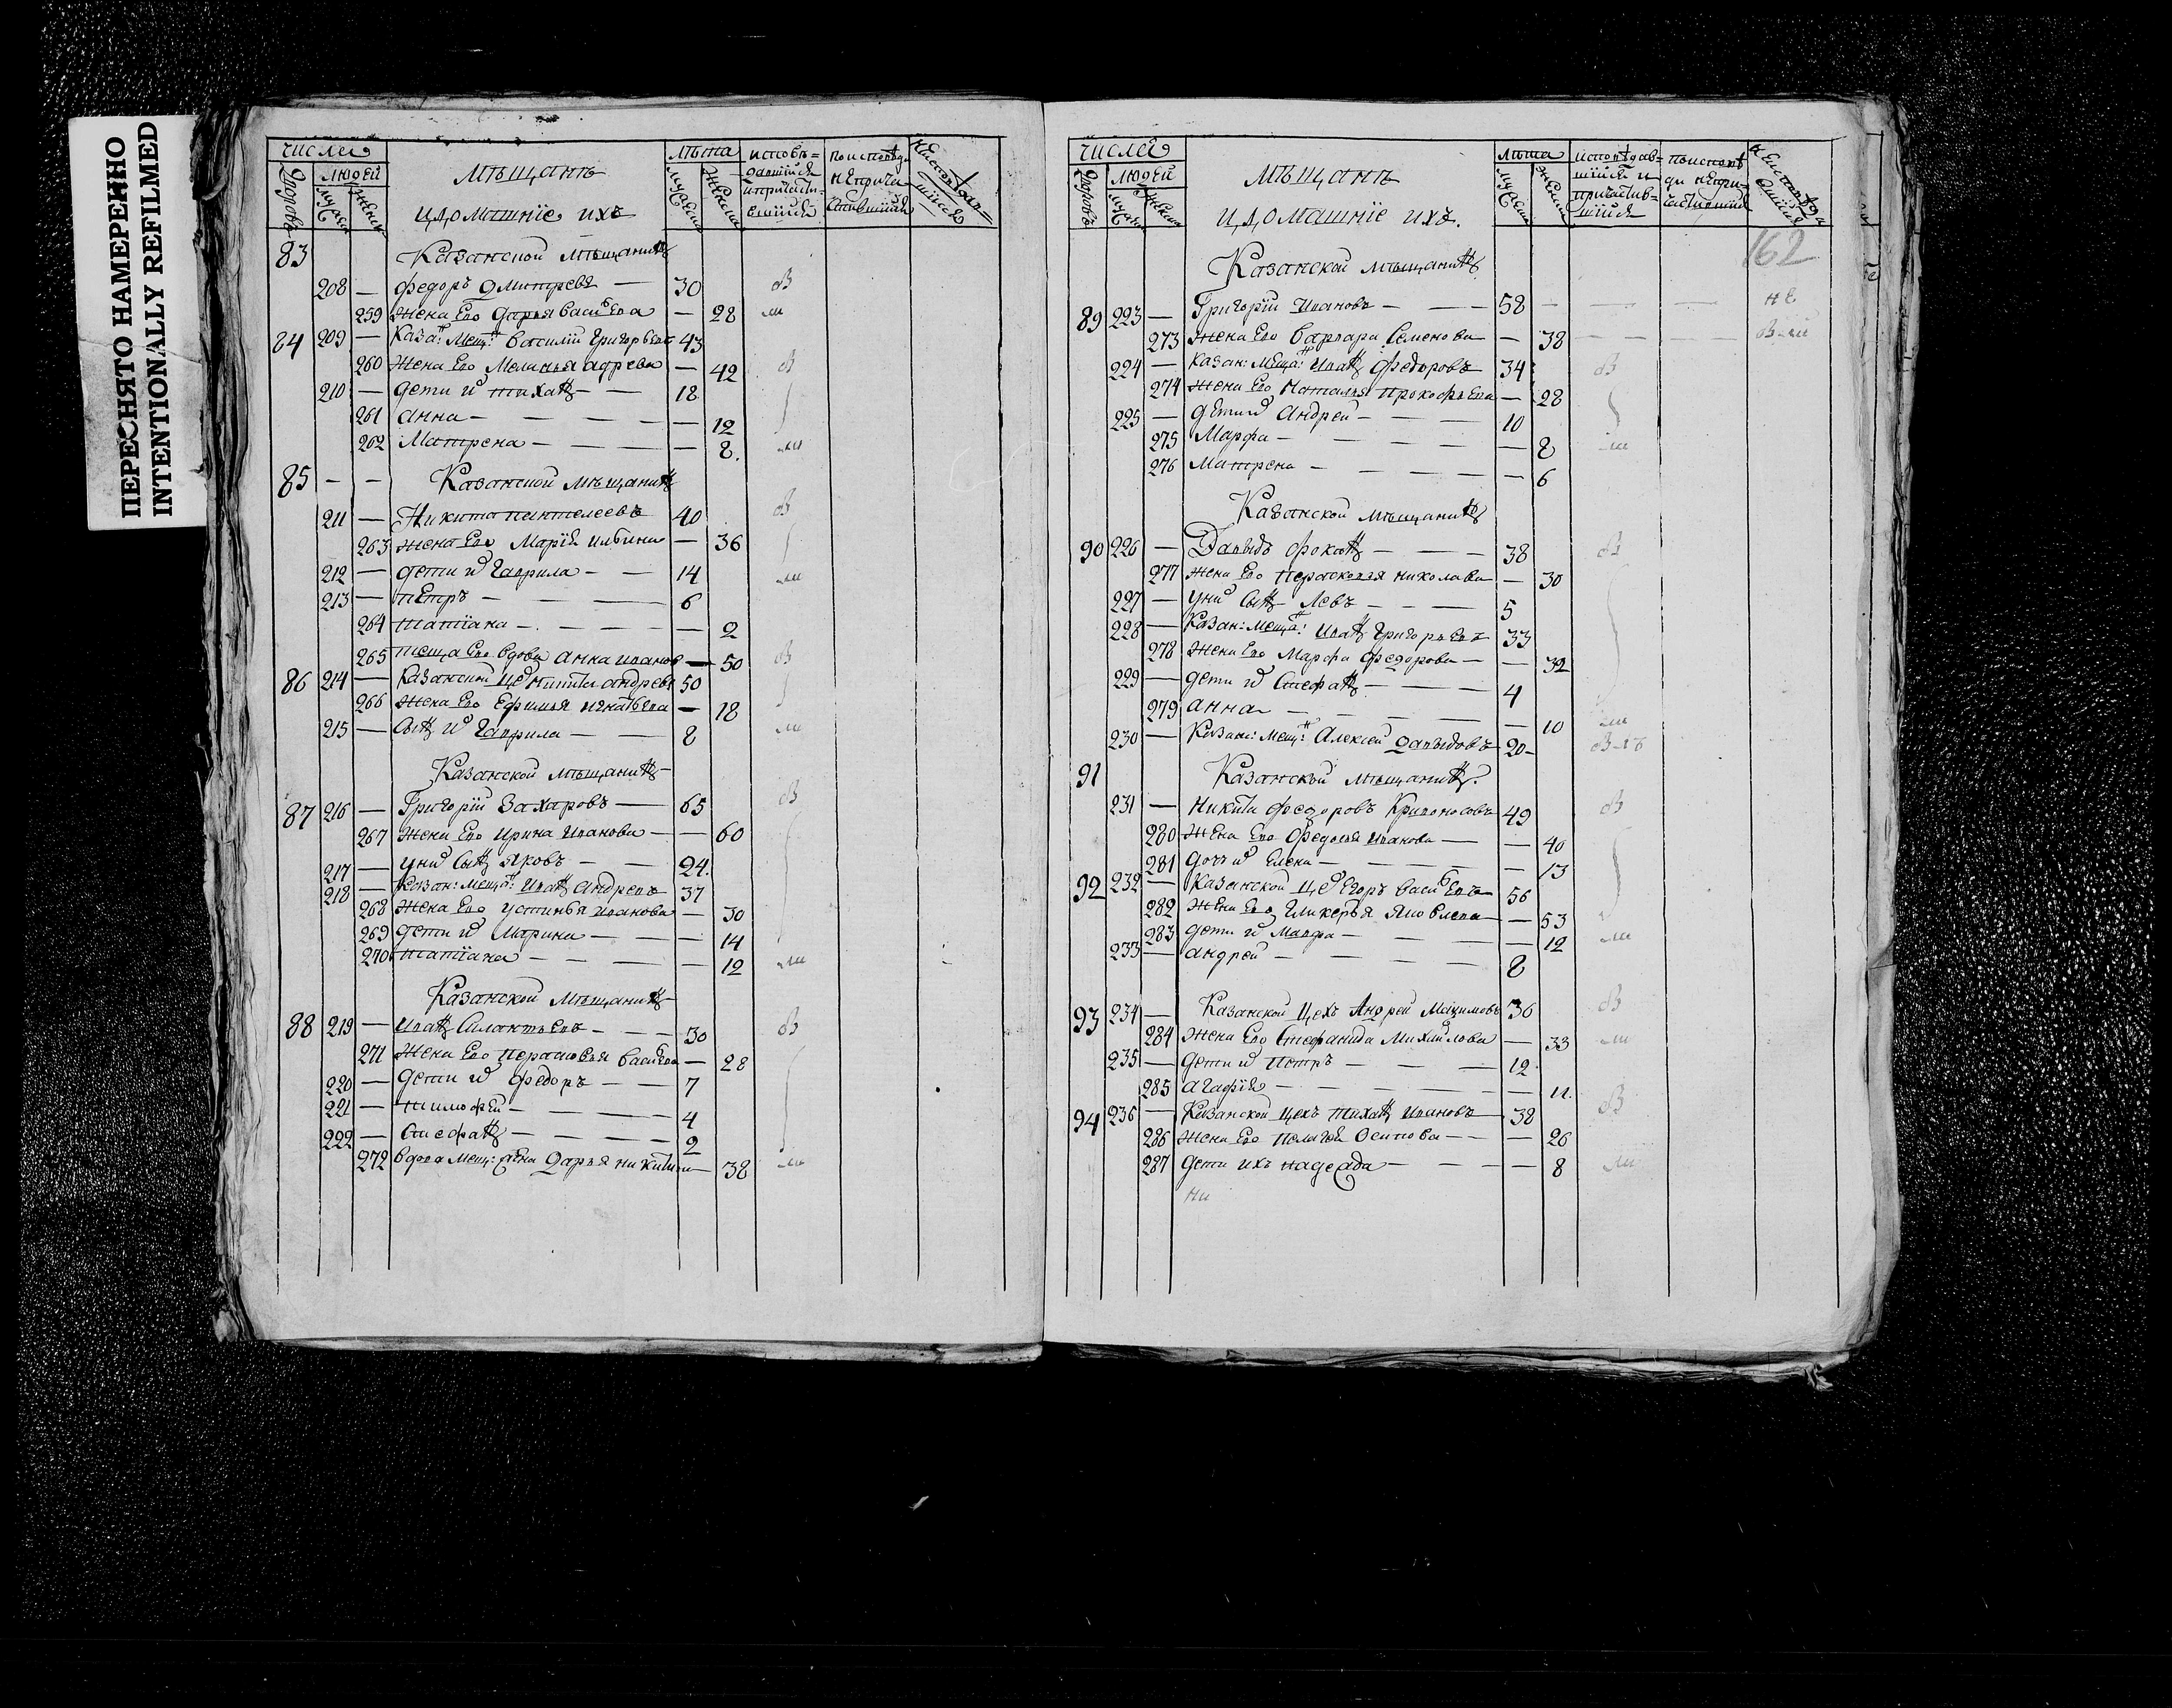 ПЕРЕСНЯТО НАМЕРЕННО
INTENTIONALLY REFILMED
Число
Дворовъ
Людей
Мужеска
Женска
Мѣщанъ
и домашнїе ихъ
Лѣта
Мужеска
Женска
83 Казанской мѣщанинъ
208 — Федоръ Дмитревъ — 30
259 жена Его Дарья Васильева — 28
84 209 — Каза: Мещ: Василий Григорьевъ 43
260 Жена Его Меланья — 42
210 — дети их — 18
261 Анна — 12
262 Матрена — 8
85 — — Казанской мѣщанинъ
211 — Никита Пантелеевъ 40
263 жена Его Марїя Ильина — 36
212 — дети их Гаврила — 14
213 — Петръ — 6
264 Татїана — 2
265 теща Его вдова Анна Иванов — 50
86 214 — Казанской Никита Андреев 50
266 Жена Его Ефимья Игнатьева — 18
215 — сынъ их Гаврила — 8
Казанской мѣщанинъ
87 216 — Григорїй Захаровъ — 65
267 Жена Его Ирина Иванова — 60
217 — у них сынъ Яковъ — 24
218 — Казан: Меща: Иванъ Андреевъ 37
268 Жена Его Устинья Иванова — 30
269 дети их Марина — 14
270 Татїана — 12
Казанской мѣщанинъ
88 219 — Иванъ Силантьевъ — 30
271 Жена Его Парасковья Васильева — 28
220 — дети их Федоръ — 7
221 — Тимофей — 4
222 — Стефанъ — 2
272 вдова Мещ: жена Дарья Никитина — 38
Число
Дворовъ
Людей
Мужеска
Женска
Мѣщанъ
и домашнїе ихъ.
Лѣта
Мужеска
Женска
162
Казанской мѣщанинъ
89 223 — Григорїй Ивановъ — 58 не
273 жена Его Варвара Семенова — 38
224 — Казан: Меща: Иванъ Федоровъ 34
274 жена Его Наталья Прокофьева — 28
225 — дети их Андрей — 10
275 Марфа — 8
276 Матрена — 6
Казанской мѣщанинъ
90 226 — Давыдъ — 38
277 жена Его Парасковья Николаева — 30
227 — у них сынъ Левъ — 5
228 — Казан: Меща: Иванъ Григорьевъ 33
278 Жена Его Марфа Федорова — 32
229 — дети их Стефанъ — 4
279 Анна — 10
230 — Казан: Мещ: Алексей Давыдовъ 20
91 Казанской мѣщанинъ
231 — Никита Федоровъ Кривоносовъ 49
280 Жена Его Федосья Иванова — 40
281 дочь их Елена — 13
92 232 — Казанской Егоръ Васильевъ 56
282 Жена Его Гликерья Яковлева — 53
283 дети их Марфа — 12
233 — Андрей — 8
93 234 — Казанской Цехъ Андрей Максимовъ 36
284 Жена Его Стефанида Михайлова — 33
235 — дети их Петръ — 12
285 Агафїя — 11
94 236 — Казанской Цехъ Иванъ Ивановъ 38
286 Жена Его Пелагея Осипова — 26
287 дети ихъ Надежда — 8